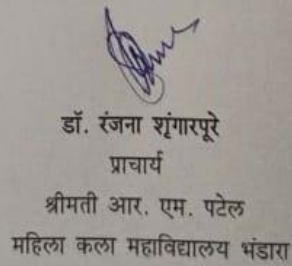 डॉ. रंजना शृंगारपूरे
प्राचार्य
श्रीमती आर. एम. पटेल
महिला कला महाविद्यालय भंडारा